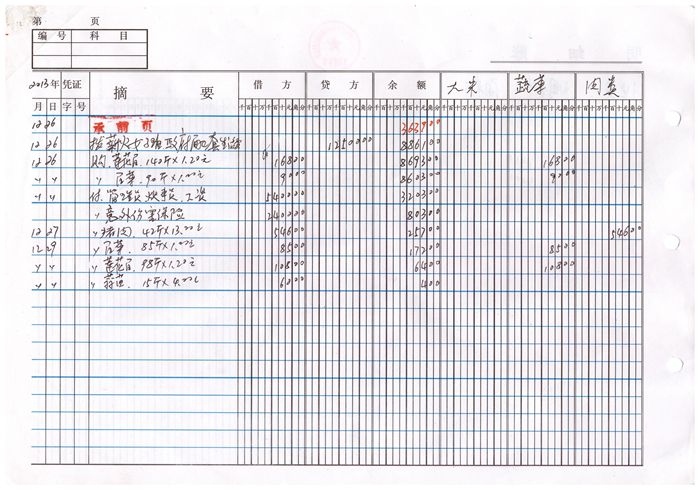 第 页
编号 科目
2013年 凭证 摘要 借方 贷方 余额 大米 蔬菜 肉类
月 日 字 号 千百十万千百十元角分 千百十万千百十元角分 千百十万千百十元角分
12 26 承前页 363900
12 26 1250000
12 26 购莲花白 140斤×1.20元 16800 869300 16800
〃 〃 〃 90斤×1.00元 9000 860300 9000
〃 〃 540000 320300
〃 意外伤害保险 240000 80300
12 27 〃 猪肉 42斤×13.00元 54600 25700 54600
12 29 〃 85斤×1.00元 8500 17200 8500
〃 〃 〃 莲花白 98斤×1.20元 10800 6400 10800
〃 〃 〃 15斤×4.00元 6000 400